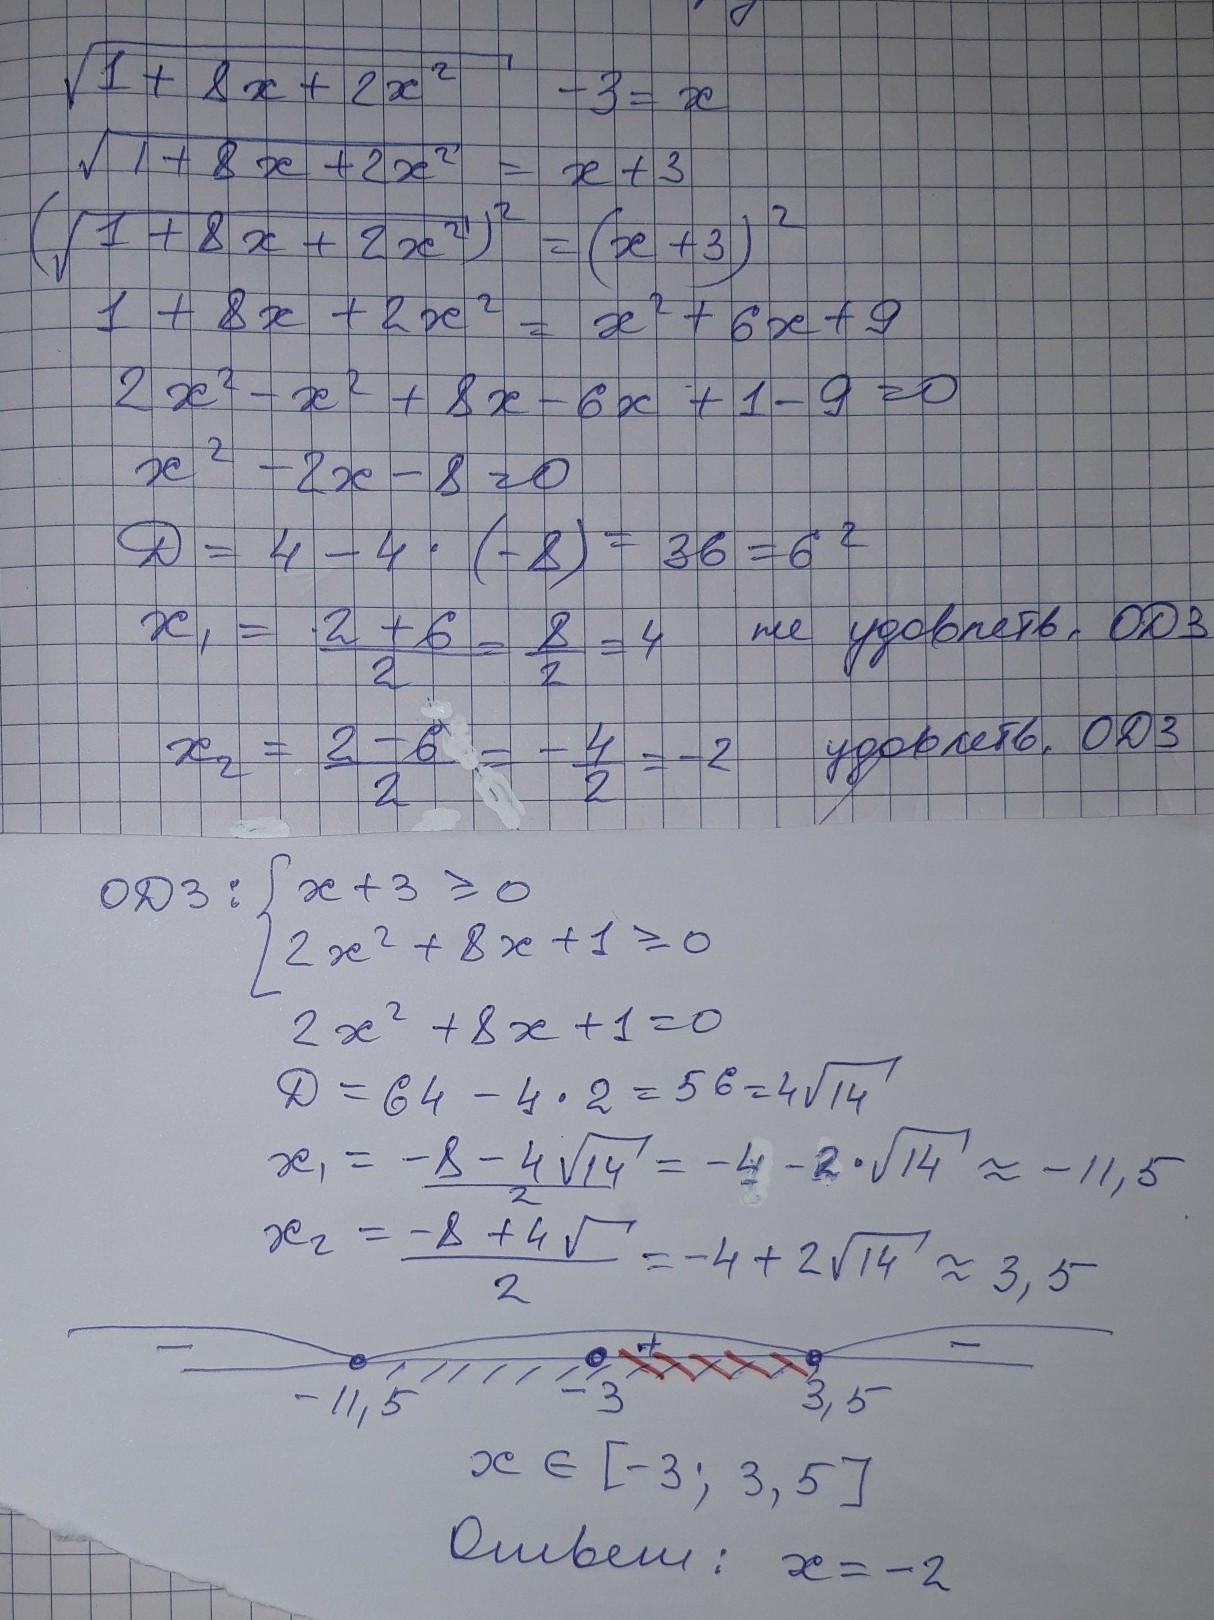 √(1 + 8x + 2x²) - 3 = x
√(1 + 8x + 2x²) = x + 3
(√(1 + 8x + 2x²))² = (x + 3)²
1 + 8x + 2x² = x² + 6x + 9
2x² - x² + 8x - 6x + 1 - 9 = 0
x² - 2x - 8 = 0
D = 4 - 4 · (-8) = 36 = 6²
x₁ = (2 + 6)/2 = 8/2 = 4 не удовлетв. ОДЗ
x₂ = (2 - 6)/2 = -4/2 = -2 удовлетв. ОДЗ
ОДЗ: { x + 3 ≥ 0
2x² + 8x + 1 ≥ 0
2x² + 8x + 1 = 0
D = 64 - 4 · 2 = 56 = 4√14
x₁ = (-8 - 4√14)/2 = -4 - 2 · √14 ≈ -11,5
x₂ = (-8 + 4√)/2 = -4 + 2√14 ≈ 3,5
- + -
-11,5 -3 3,5
x ∈ [-3; 3,5]
Ответ: x = -2